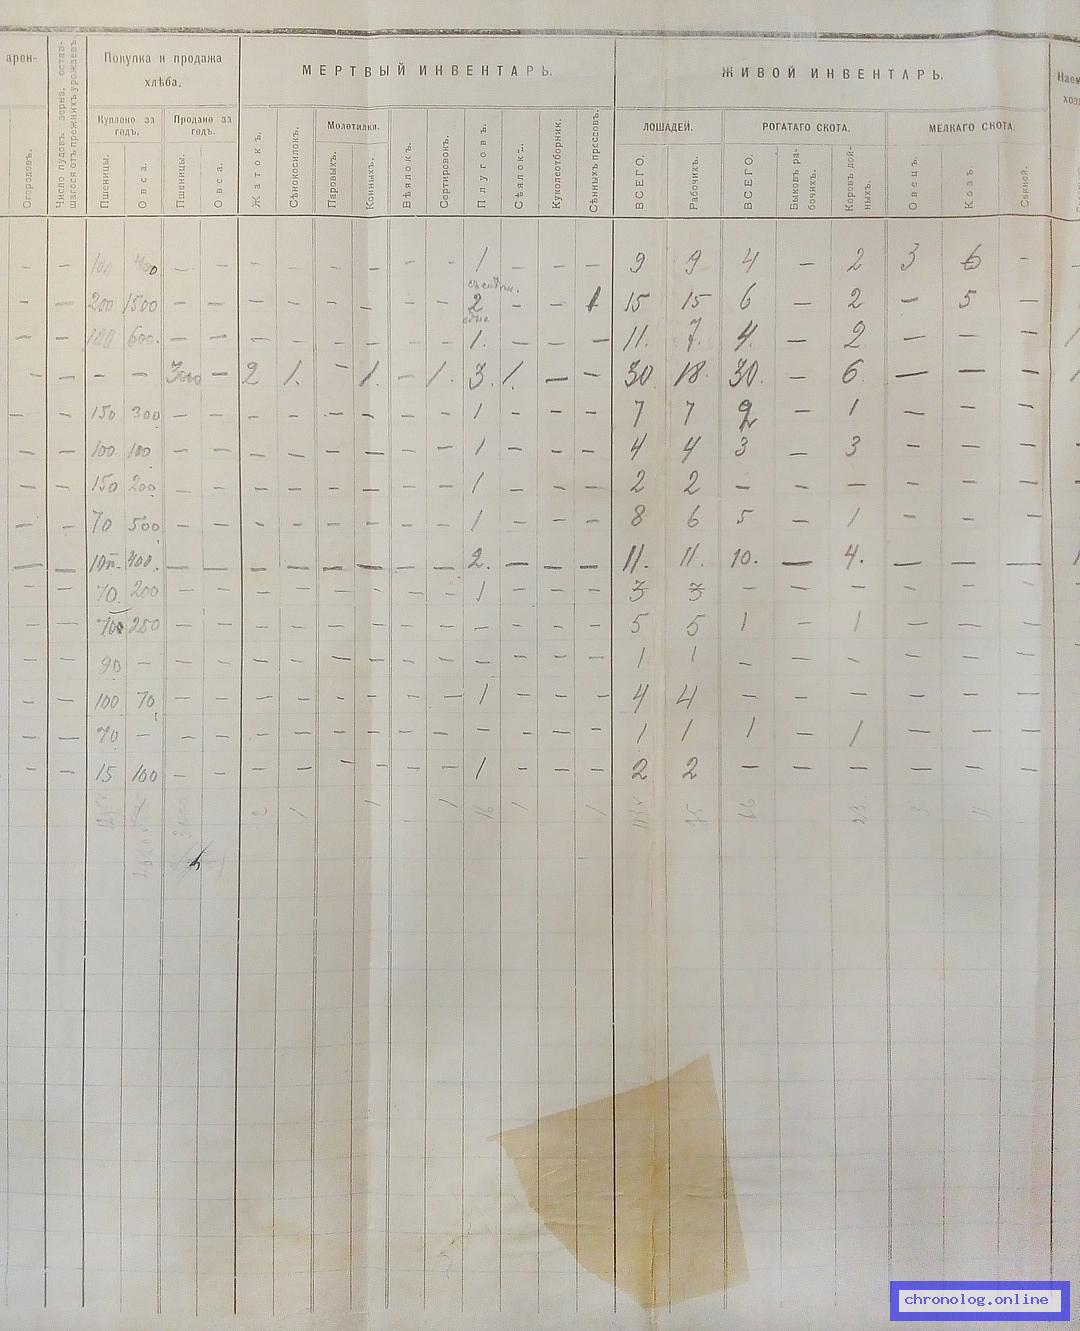 арен-
Покупка и продажа
хлѣба.
МЕРТВЫЙ ИНВЕНТАРЬ.
ЖИВОЙ ИНВЕНТАРЬ.
Наем
хозя
Число пудовъ зерна, остав-
шагося отъ прежнихъ урожаевъ.
Куплено за
годъ.
Продано за
годъ.
Молотилки.
ЛОШАДЕЙ.
РОГАТАГО СКОТА.
МЕЛКАГО СКОТА.
Огородовъ.
Пшеницы.
Овса.
Пшеницы.
Овса.
Жатокъ.
Сѣнокосилокъ.
Паровыхъ.
Конныхъ.
Вѣялокъ.
Сортировокъ.
Плуговъ.
Сѣялокъ.
Куколеотборник.
Сѣнныхъ прессовъ.
ВСЕГО.
Рабочихъ.
ВСЕГО.
Быковъ ра-
бочихъ.
Коровъ дой-
ныхъ.
Овецъ.
Козъ.
Свиней.
– – 100 400 – – – – – – – – 1 – – – 9 9 4 – 2 3 6 –
– – 200 1500 – – – – – – – – 2 – – 1 15 15 6 – 2 – 5 –
– – 100 600. – – – – – – – – 1. – – – 11. 7. 4. – 2 – – –
– – – – 3000 – 2 1. – 1. – 1. 3. 1. – – 30 18. 30. – 6. – – –
– – 150 300 – – – – – – – – 1 – – – 7 7 2 – 1 – – –
– – 100. 100 – – – – – – – – 1 – – – 4 4 3 – 3 – – –
– – 150 200 – – – – – – – – 1 – – – 2 2 – – – – – –
– – 70 500 – – – – – – – – 1 – – – 8 6 5 – 1 – – –
– – 400. – – – – – – – – 2. – – – 11. 11. 10. – 4. – – –
– – 70. 200 – – – – – – – – 1 – – – 3 3 – – – – –
– – 700 250 – – – – – – – – – – – – 5 5 1 – 1 – – –
– – 90 – – – – – – – – – – – – – 1 1 – – – – – –
– – 100 70 – – – – – – – – 1 – – – 4 4 – – – – – –
– – 70 – – – – – – – – – – – – – 1 1 1 – 1 – – –
– – 15 100 – – – – – – – – 1 – – – 2 2 – – – – – –
2 1 1 1 16 1 1 23 3 11
chronolog.online